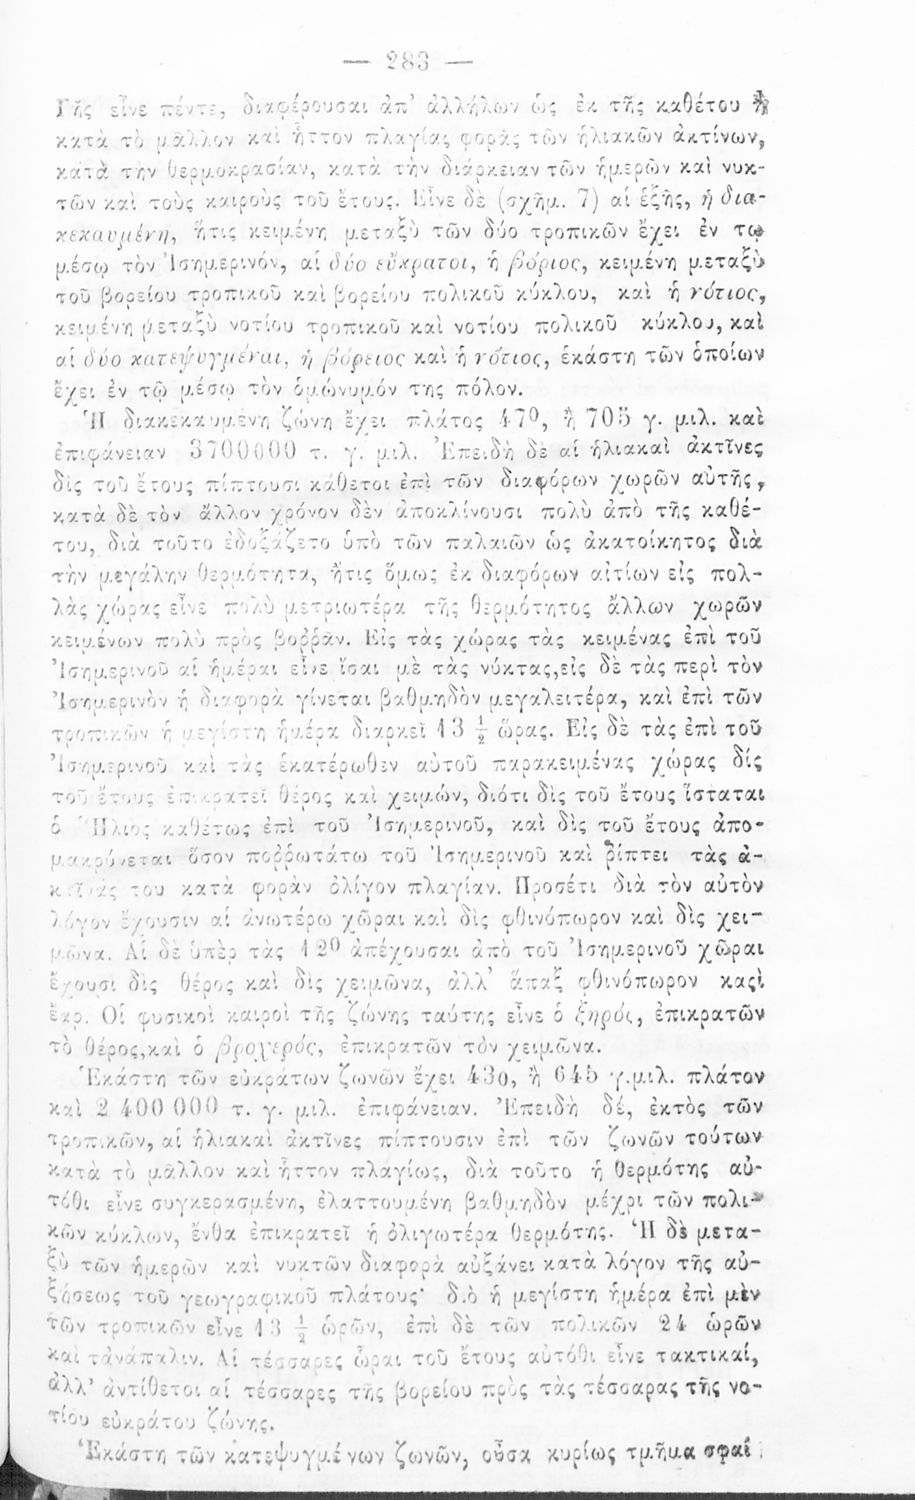 — 283 —
Γῆς εἶνε πέντε, διαφέρουσαι ἀπ’ ἀλλήλων ὡς ἐκ τῆς καθέτου ἢ
κατὰ τὸ μᾶλλον καὶ ἧττον πλαγίας φορᾶς τῶν ἡλιακῶν ἀκτίνων,
κατὰ τὴν θερμοκρασίαν, κατὰ τὴν διάρκειαν τῶν ἡμερῶν καὶ νυκ-
τῶν καὶ τοὺς καιροὺς τοῦ ἔτους. Εἶνε δὲ (σχῆμ. 7) αἱ ἑξῆς, ἡ δια-
κεκαυμένη, ἥτις κειμένη μεταξὺ τῶν δύο τροπικῶν ἔχει ἐν τῳ
μέσῳ τὸν Ἰσημερινόν, αἱ δύο εὔκρατοι, ἡ βόριος, κειμένη μεταξὺ
τοῦ βορείου τροπικοῦ καὶ βορείου πολικοῦ κύκλου, καὶ ἡ νότιος,
κειμένη μεταξὺ νοτίου τροπικοῦ καὶ νοτίου πολικοῦ κύκλου, καὶ
αἱ δύο κατεψυγμέναι, ἡ βόρειος καὶ ἡ νότιος, ἑκάστη τῶν ὁποίων
ἔχει ἐν τῷ μέσῳ τὸν ὁμώνυμόν της πόλον.
Ἡ διακεκαυμένη ζώνη ἔχει πλάτος 47⁰, ἢ 705 γ. μιλ. καὶ
ἐπιφάνειαν 3700000 τ. γ. μιλ. Ἐπειδὴ δὲ αἱ ἡλιακαὶ ἀκτῖνες
δὶς τοῦ ἔτους πίπτουσι κάθετοι ἐπὶ τῶν διαφόρων χωρῶν αὐτῆς,
κατὰ δὲ τὸν ἄλλον χρόνον δὲν ἀποκλίνουσι πολὺ ἀπὸ τῆς καθέ-
του, διὰ τοῦτο ἐδοξάζετο ὑπὸ τῶν παλαιῶν ὡς ἀκατοίκητος διὰ
τὴν μεγάλην θερμότητα, ἥτις ὅμως ἐκ διαφόρων αἰτίων εἰς πολ-
λὰς χώρας εἶνε πολὺ μετριωτέρα τῆς θερμότητος ἄλλων χωρῶν
κειμένων πολὺ πρὸς βοῤῥᾶν. Εἰς τὰς χώρας τὰς κειμένας ἐπὶ τοῦ
Ἰσημερινοῦ αἱ ἡμέραι εἶνε ἴσαι μὲ τὰς νύκτας,εἰς δὲ τὰς περὶ τὸν
Ἰσημερινὸν ἡ διαφορὰ γίνεται βαθμηδὸν μεγαλειτέρα, καὶ ἐπὶ τῶν
τροπικῶν ἡ μεγίστη ἡμέρα διαρκεῖ 13 ½ ὥρας. Εἰς δὲ τὰς ἐπὶ τοῦ
Ἰσημερινοῦ καὶ τὰς ἑκατέρωθεν αὐτοῦ παρακειμένας χώρας δίς
τοῦ ἔτους ἐπικρατεῖ θέρος καὶ χειμών, διότι δὶς τοῦ ἔτους ἵσταται
ὁ Ἥλιος καθέτως ἐπὶ τοῦ Ἰσημερινοῦ, καὶ δὶς τοῦ ἔτους ἀπο-
μακρύνεται ὅσον ποῤῥωτάτω τοῦ Ἰσημερινοῦ καὶ ῥίπτει τὰς ἀ-
κτῖνάς του κατὰ φορὰν ὀλίγον πλαγίαν. Προσέτι διὰ τὸν αὐτὸν
λόγον ἔχουσιν αἱ ἀνωτέρω χῶραι καὶ δὶς φθινόπωρον καὶ δὶς χει-
μῶνα. Αἱ δὲ ὑπὲρ τὰς 12⁰ ἀπέχουσαι ἀπὸ τοῦ Ἰσημερινοῦ χῶραι
ἔχουσι δὶς θέρος καὶ δὶς χειμῶνα, ἀλλ’ ἅπαξ φθινόπωρον καςὶ
ἔαρ. Οἱ φυσικοὶ καιροὶ τῆς ζώνης ταύτης εἶνε ὁ ξηρός, ἐπικρατῶν
τὸ θέρος,καὶ ὁ βροχερός, ἐπικρατῶν τὸν χειμῶνα.
Ἑκάστη τῶν εὐκράτων ζωνῶν ἔχει 43ο, ἢ 645 γ.μιλ. πλάτον
καὶ 2 400 000 τ. γ. μιλ. ἐπιφάνειαν. Ἐπειδὴ δέ, ἐκτὸς τῶν
τροπικῶν, αἱ ἡλιακαὶ ἀκτῖνες πίπτουσιν ἐπὶ τῶν ζωνῶν τούτων
κατὰ τὸ μᾶλλον καὶ ἧττον πλαγίως, διὰ τοῦτο ἡ θερμότης αὐ-
τόθι εἶνε συγκερασμένη, ἐλαττουμένη βαθμηδὸν μέχρι τῶν πολι-
κῶν κύκλων, ἔνθα ἐπικρατεῖ ἡ ὀλιγωτέρα θερμότης. Ἡ δὲ μετα-
ξὺ τῶν ἡμερῶν καὶ νυκτῶν διαφορὰ αὐξάνει κατὰ λόγον τῆς αὐ-
ξήσεως τοῦ γεωγραφικοῦ πλάτους· διὸ ἡ μεγίστη ἡμέρα ἐπὶ μὲν
τῶν τροπικῶν εἶνε 13 ½ ὡρῶν, ἐπὶ δὲ τῶν πολικῶν 24 ὡρῶν
καὶ τἀνάπαλιν. Αἱ τέσσαρες ὧραι τοῦ ἔτους αὐτόθι εἶνε τακτικαί,
ἀλλ’ ἀντίθετοι αἱ τέσσαρες τῆς βορείου πρὸς τὰς τέσσαρας τῆς νο-
τίου εὐκράτου ζώνης.
Ἑκάστη τῶν κατεψυγμένων ζωνῶν, οὖσα κυρίως τμῆμα σφαί